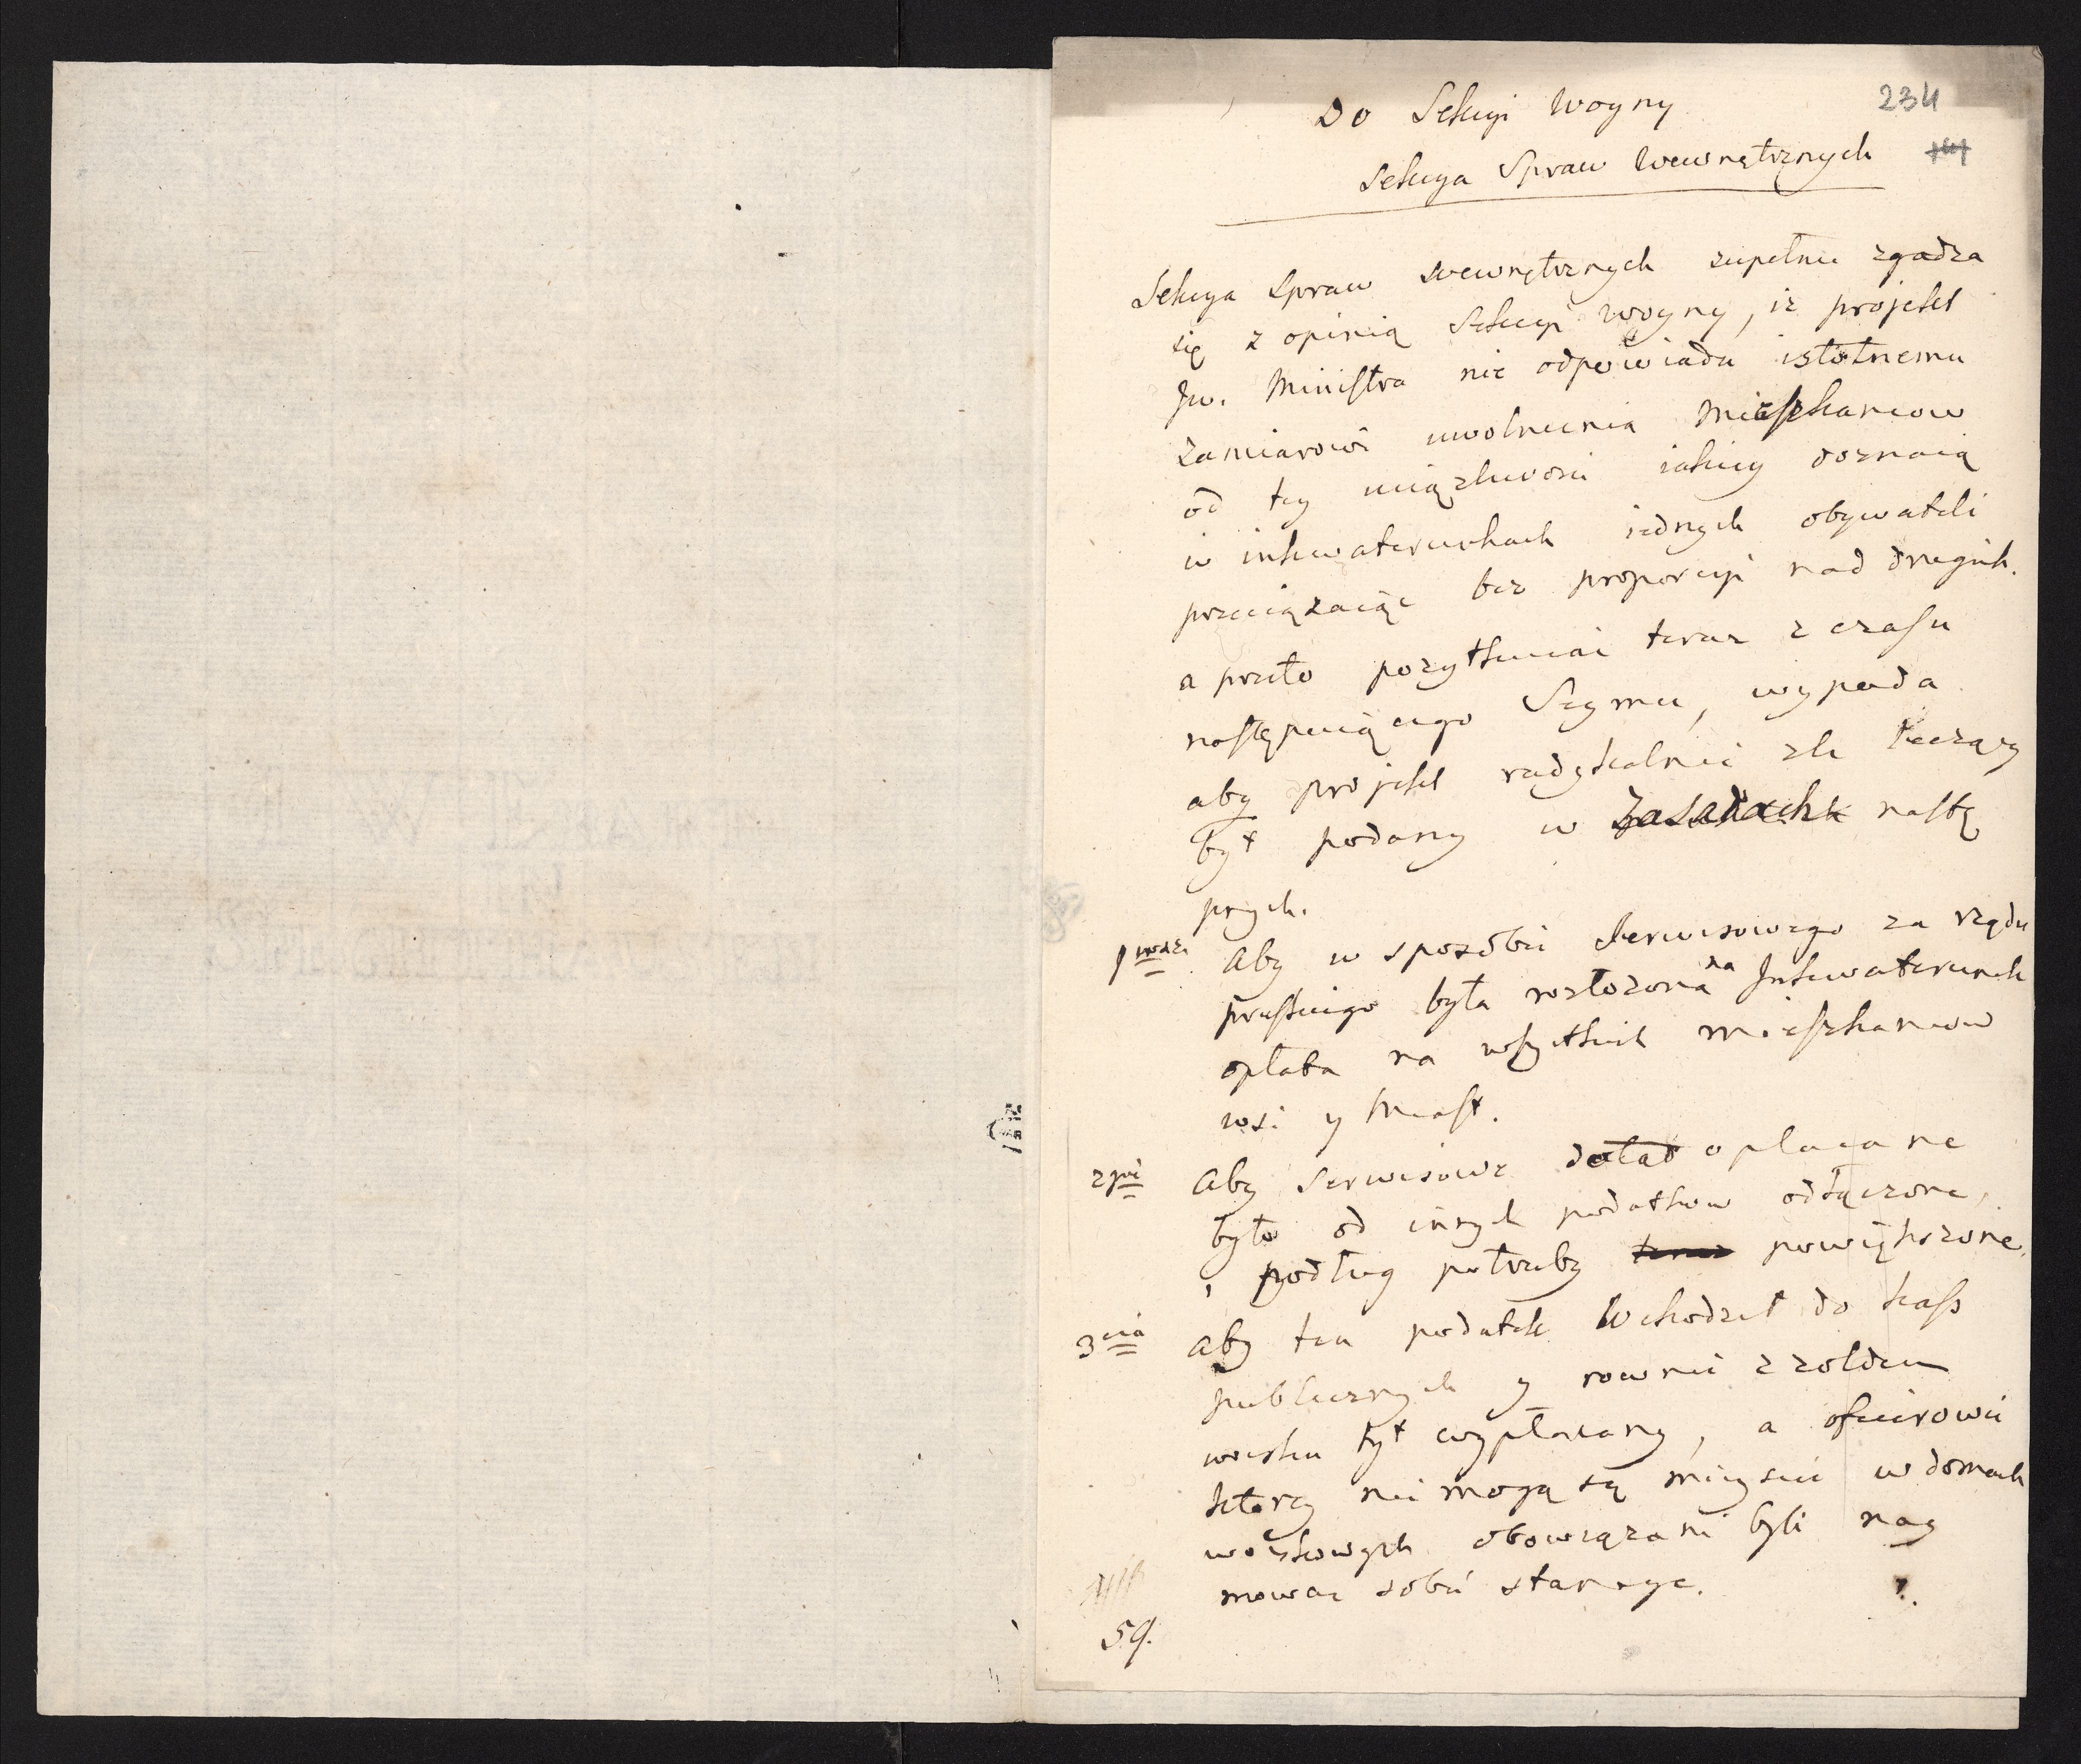 234
Do Sekcyi Woyny
Sekcya Spraw Wewnętrznych
Sekcya Spraw Wewnętrznych zupełnie zgadza
się z opinią Sekcyi Woyny, iż projekt
Jw. Ministra nie odpowiada istotnemu
zamiarowi uwolnienia Mieszkancow
od tey uciążliwosci iakiey doznaią
w inkwaterunkach iednych obywateli
przeciążaiąc bez proporcyi nad drugich.
a przeto pozytkuiąc teraz z czasu
następuiącego Seymu, wypada
aby projekt radykalnie złe leczący
był podany w Zasadach nastę
pnych.
1mo Aby w sposobie Serwisowego za rządu
pruskiego była rozłożona na Inkwaterunek
opłata na wszystkich mieszkancow
wsi y Miast.
2do Aby Serwisowe dotąd opłacane
było od innych podatkow odłączone,
i podług potrzeby powiększone.
3cio Aby ten podatek Wchodził do kass
publicznych y rownie z żołdem
woisku był wypłacany, a oficirowie
ktorzy nie mogą się mieścić w domach
woiskowych obowiązani byli nay
mować sobie stancye.
59.